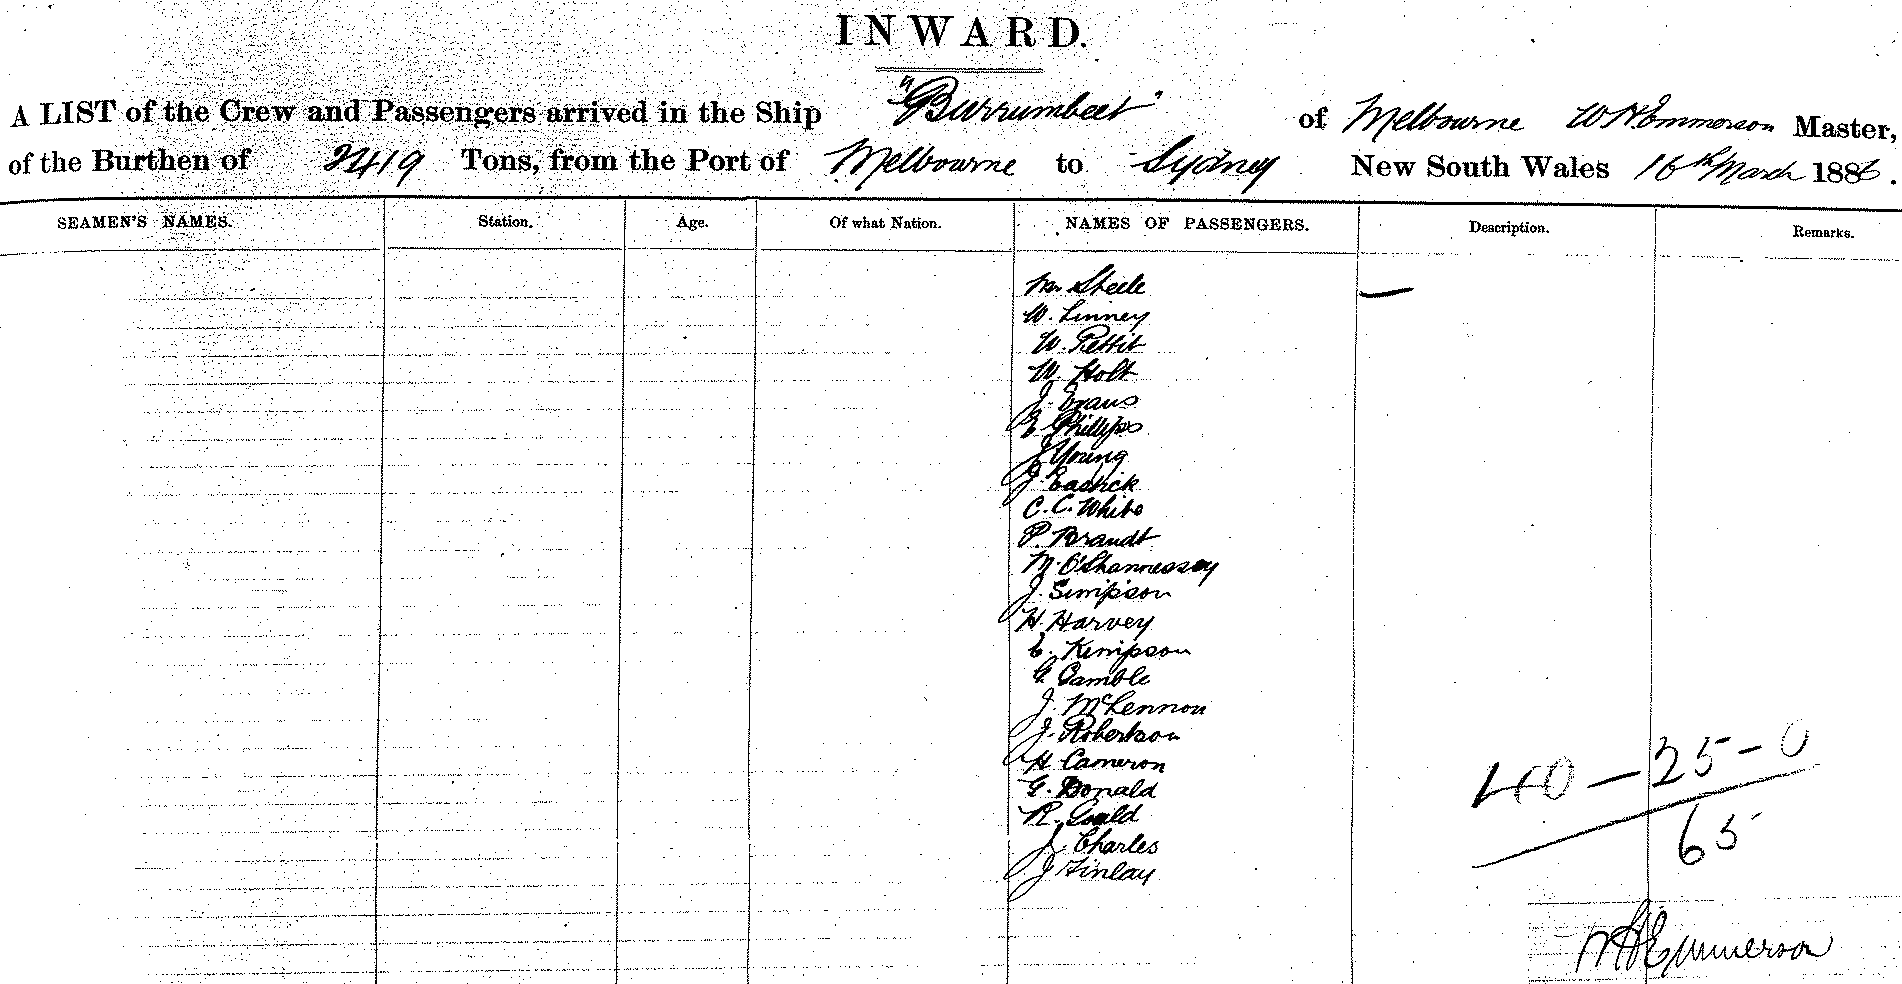 INWARD.
A LIST of the Crew and Passengers arrived in the Ship "Burrumbeet" of Melbourne W H Emmerson Master,
of the Burthen of 2419 Tons, from the Port of Melbourne to Sydney New South Wales 16th March 1886.
SEAMEN'S NAMES. Station. Age. Of what Nation. NAMES OF PASSENGERS. Description. Remarks.
Mr. Steele —
W. Linney
W. Pettit
W. Holt
J. Evans
E Phillips
J Young
J.
C. C. White
P. Brandt
M. O'Shannessey
J. Simpson
H. Harvey
E. Kempson
G. Gamble
J. McLennon
J. Robertson
H Cameron
G. Donald
R. Gould
J Charles
J Finlay
40 — 25 - 0
65
W H Emmerson